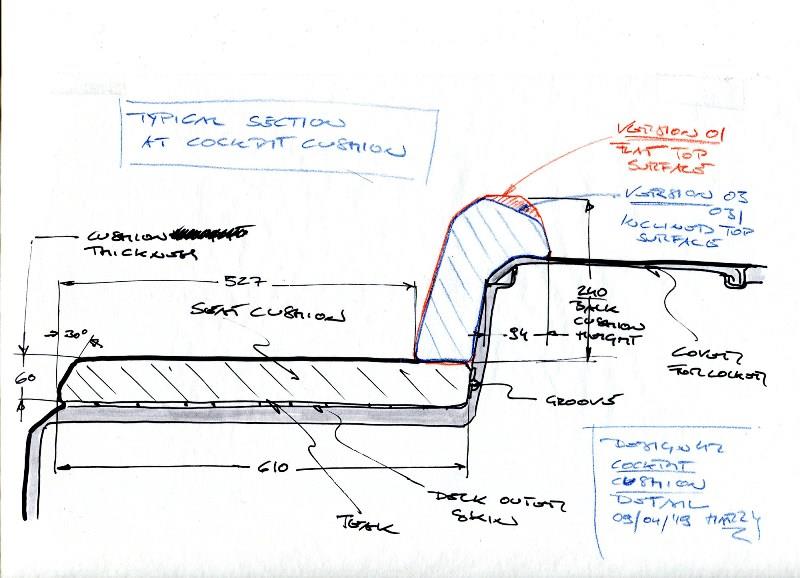 TYPICAL SECTION
AT COCKPIT CUSHION
VERSION 01
FLAT TOP
SURFACE
VERSION 03
031
INCLINED TOP
SURFACE
CUSHION
THICKNESS
527
SEAT CUSHION
30°
60
240
BACK
CUSHION
HEIGHT
94
COVER
FOR LOCKER
GROOVE
610
DECK OUTER
SKIN
TEAK
DESIGN 42
COCKPIT
CUSHION
DETAIL
09/04/19 HARRY